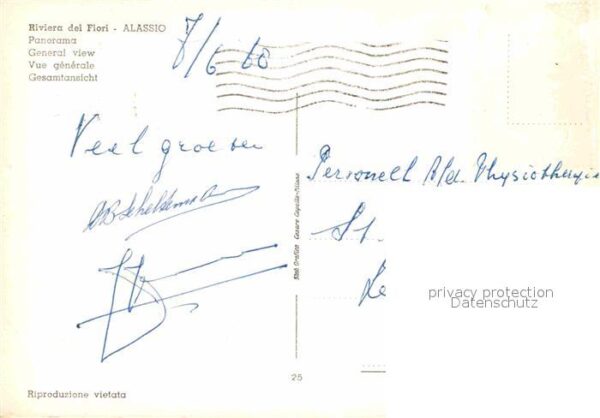 Riviera dei Fiori - ALASSIO
Panorama
General view
Vue générale
Gesamtansicht
7/6 60
Veel groeten
Personeel Afd. Physiotherapie
St.
privacy protection
Datenschutz
Stab. Grafico Cesare Capello - Milano
25
Riproduzione vietata